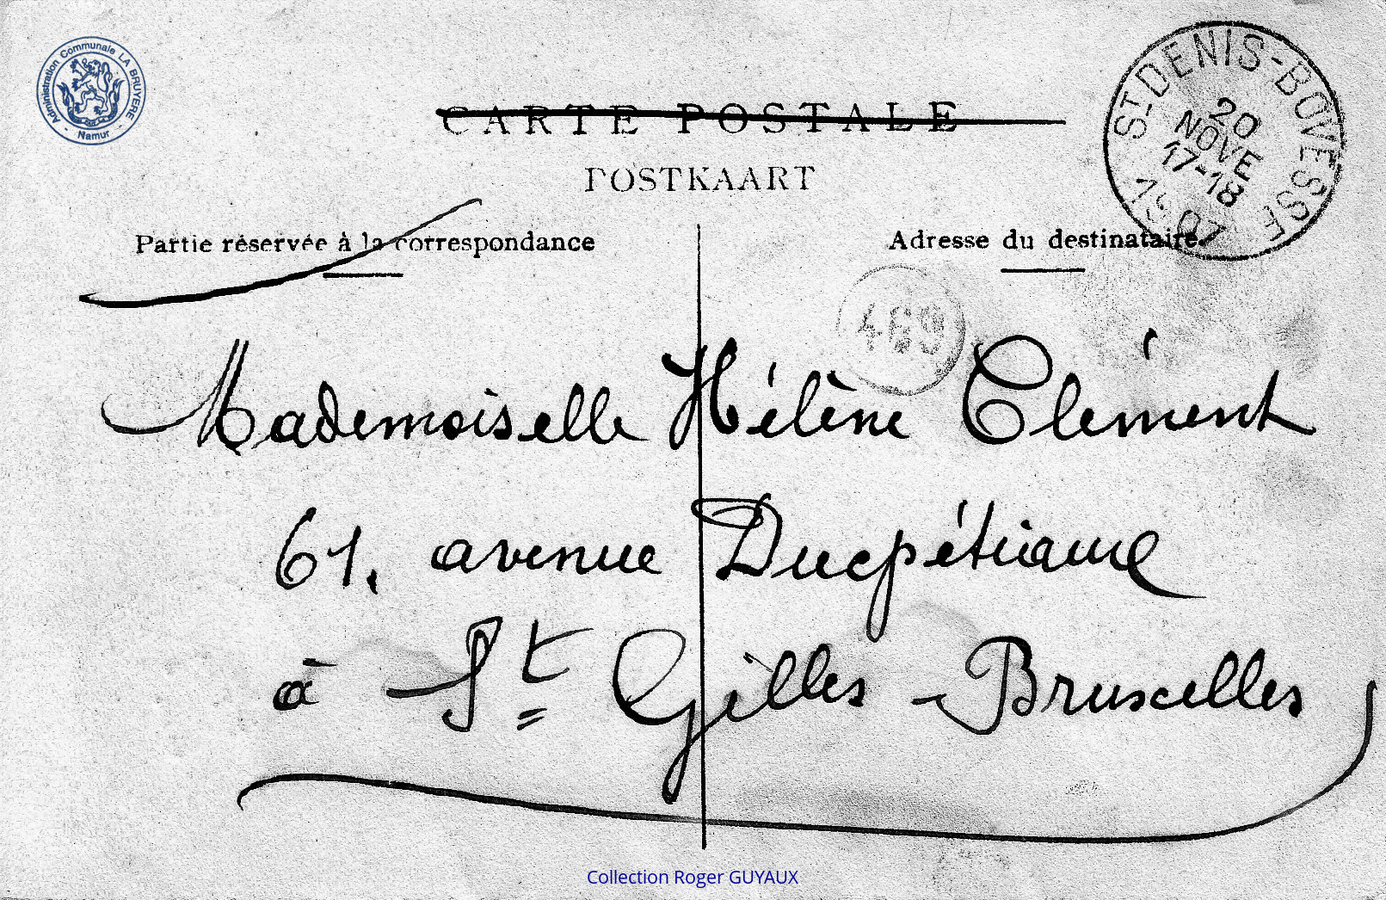 Administration Communale LA BRUYÈRE
- Namur -
CARTE POSTALE
POSTKAART
ST DENIS-BOVESSE
20
NOVE
17-18
1907
Partie réservée à la correspondance
Adresse du destinataire
469
Mademoiselle Hélène Clément
61, avenue Ducpétiaux
à St Gilles - Bruxelles
Collection Roger GUYAUX